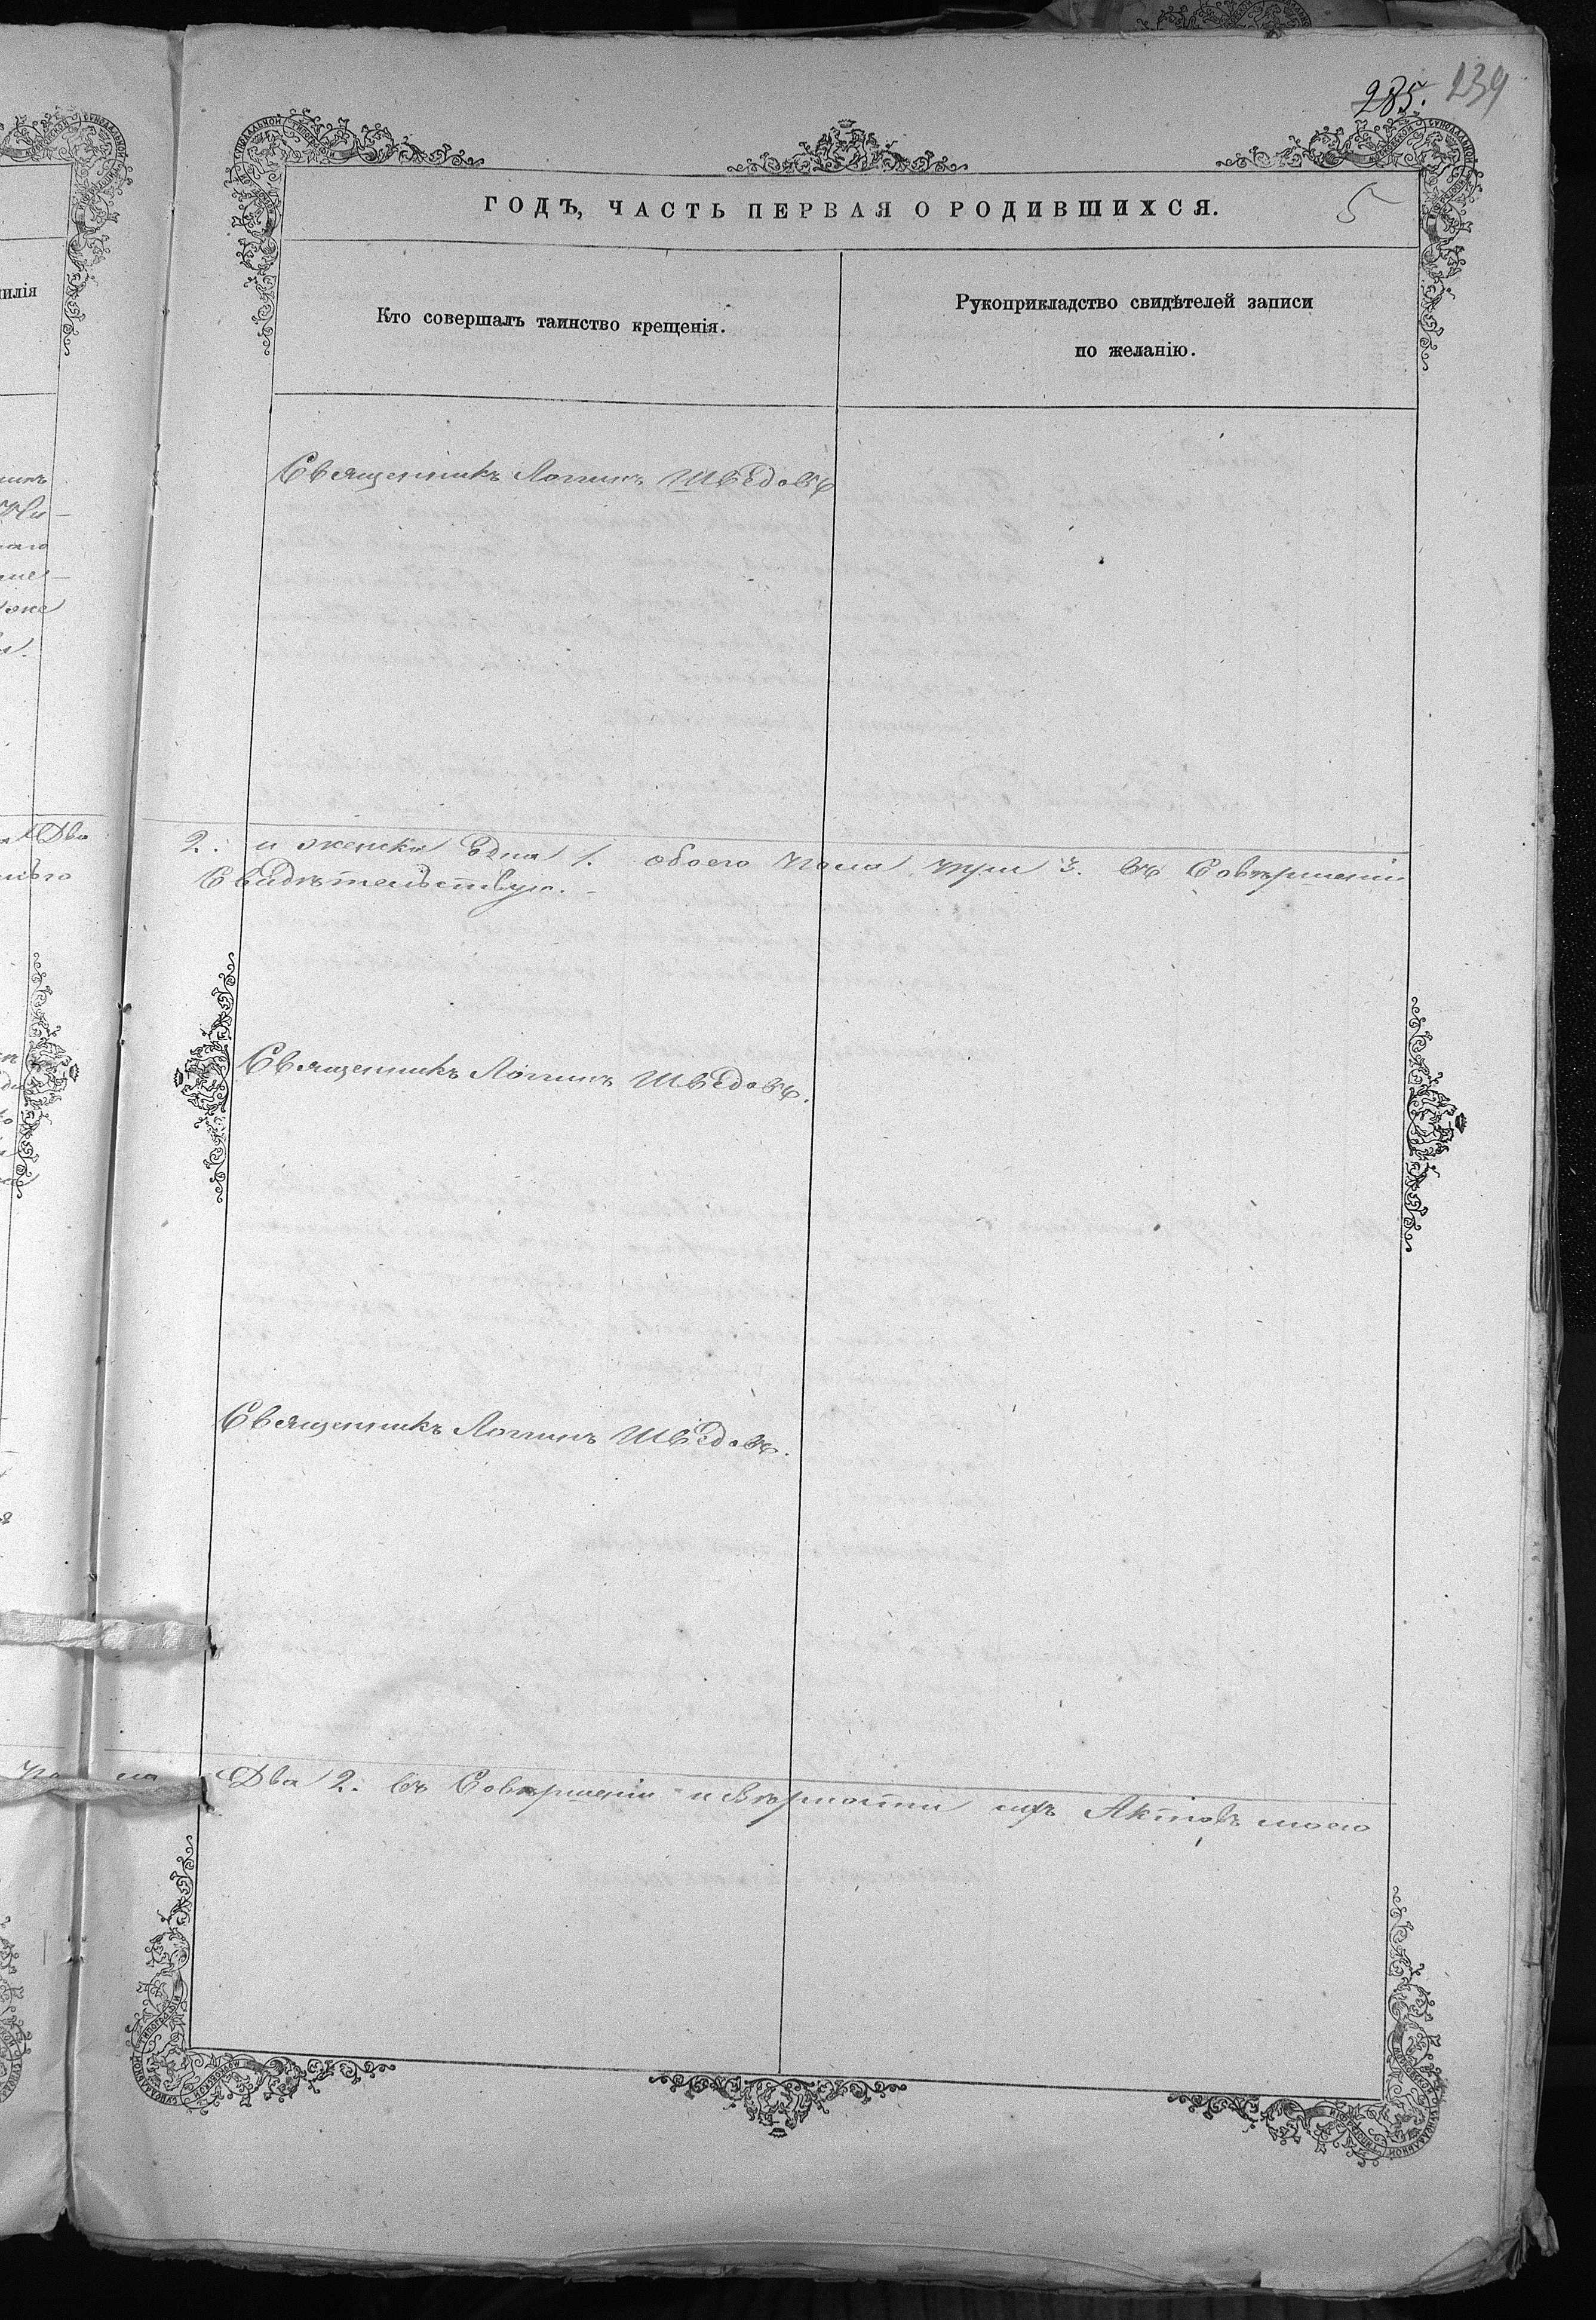 285. 139
ГОДЪ, ЧАСТЬ ПЕРВАЯ О РОДИВШИХСЯ. 5
Кто совершалъ таинство крещенія.
Рукоприкладство свидѣтелей записи
по желанію.
Священникъ Логинъ Шведовъ
2. и женска Една 1. обоего пола три 3. въ Совершеніи
Свидѣтельствую.
Священникъ Логинъ Шведовъ.
Священникъ Логинъ Шведовъ.
Два 2. въ Совершеніи и вѣрности сихъ Актовъ моею